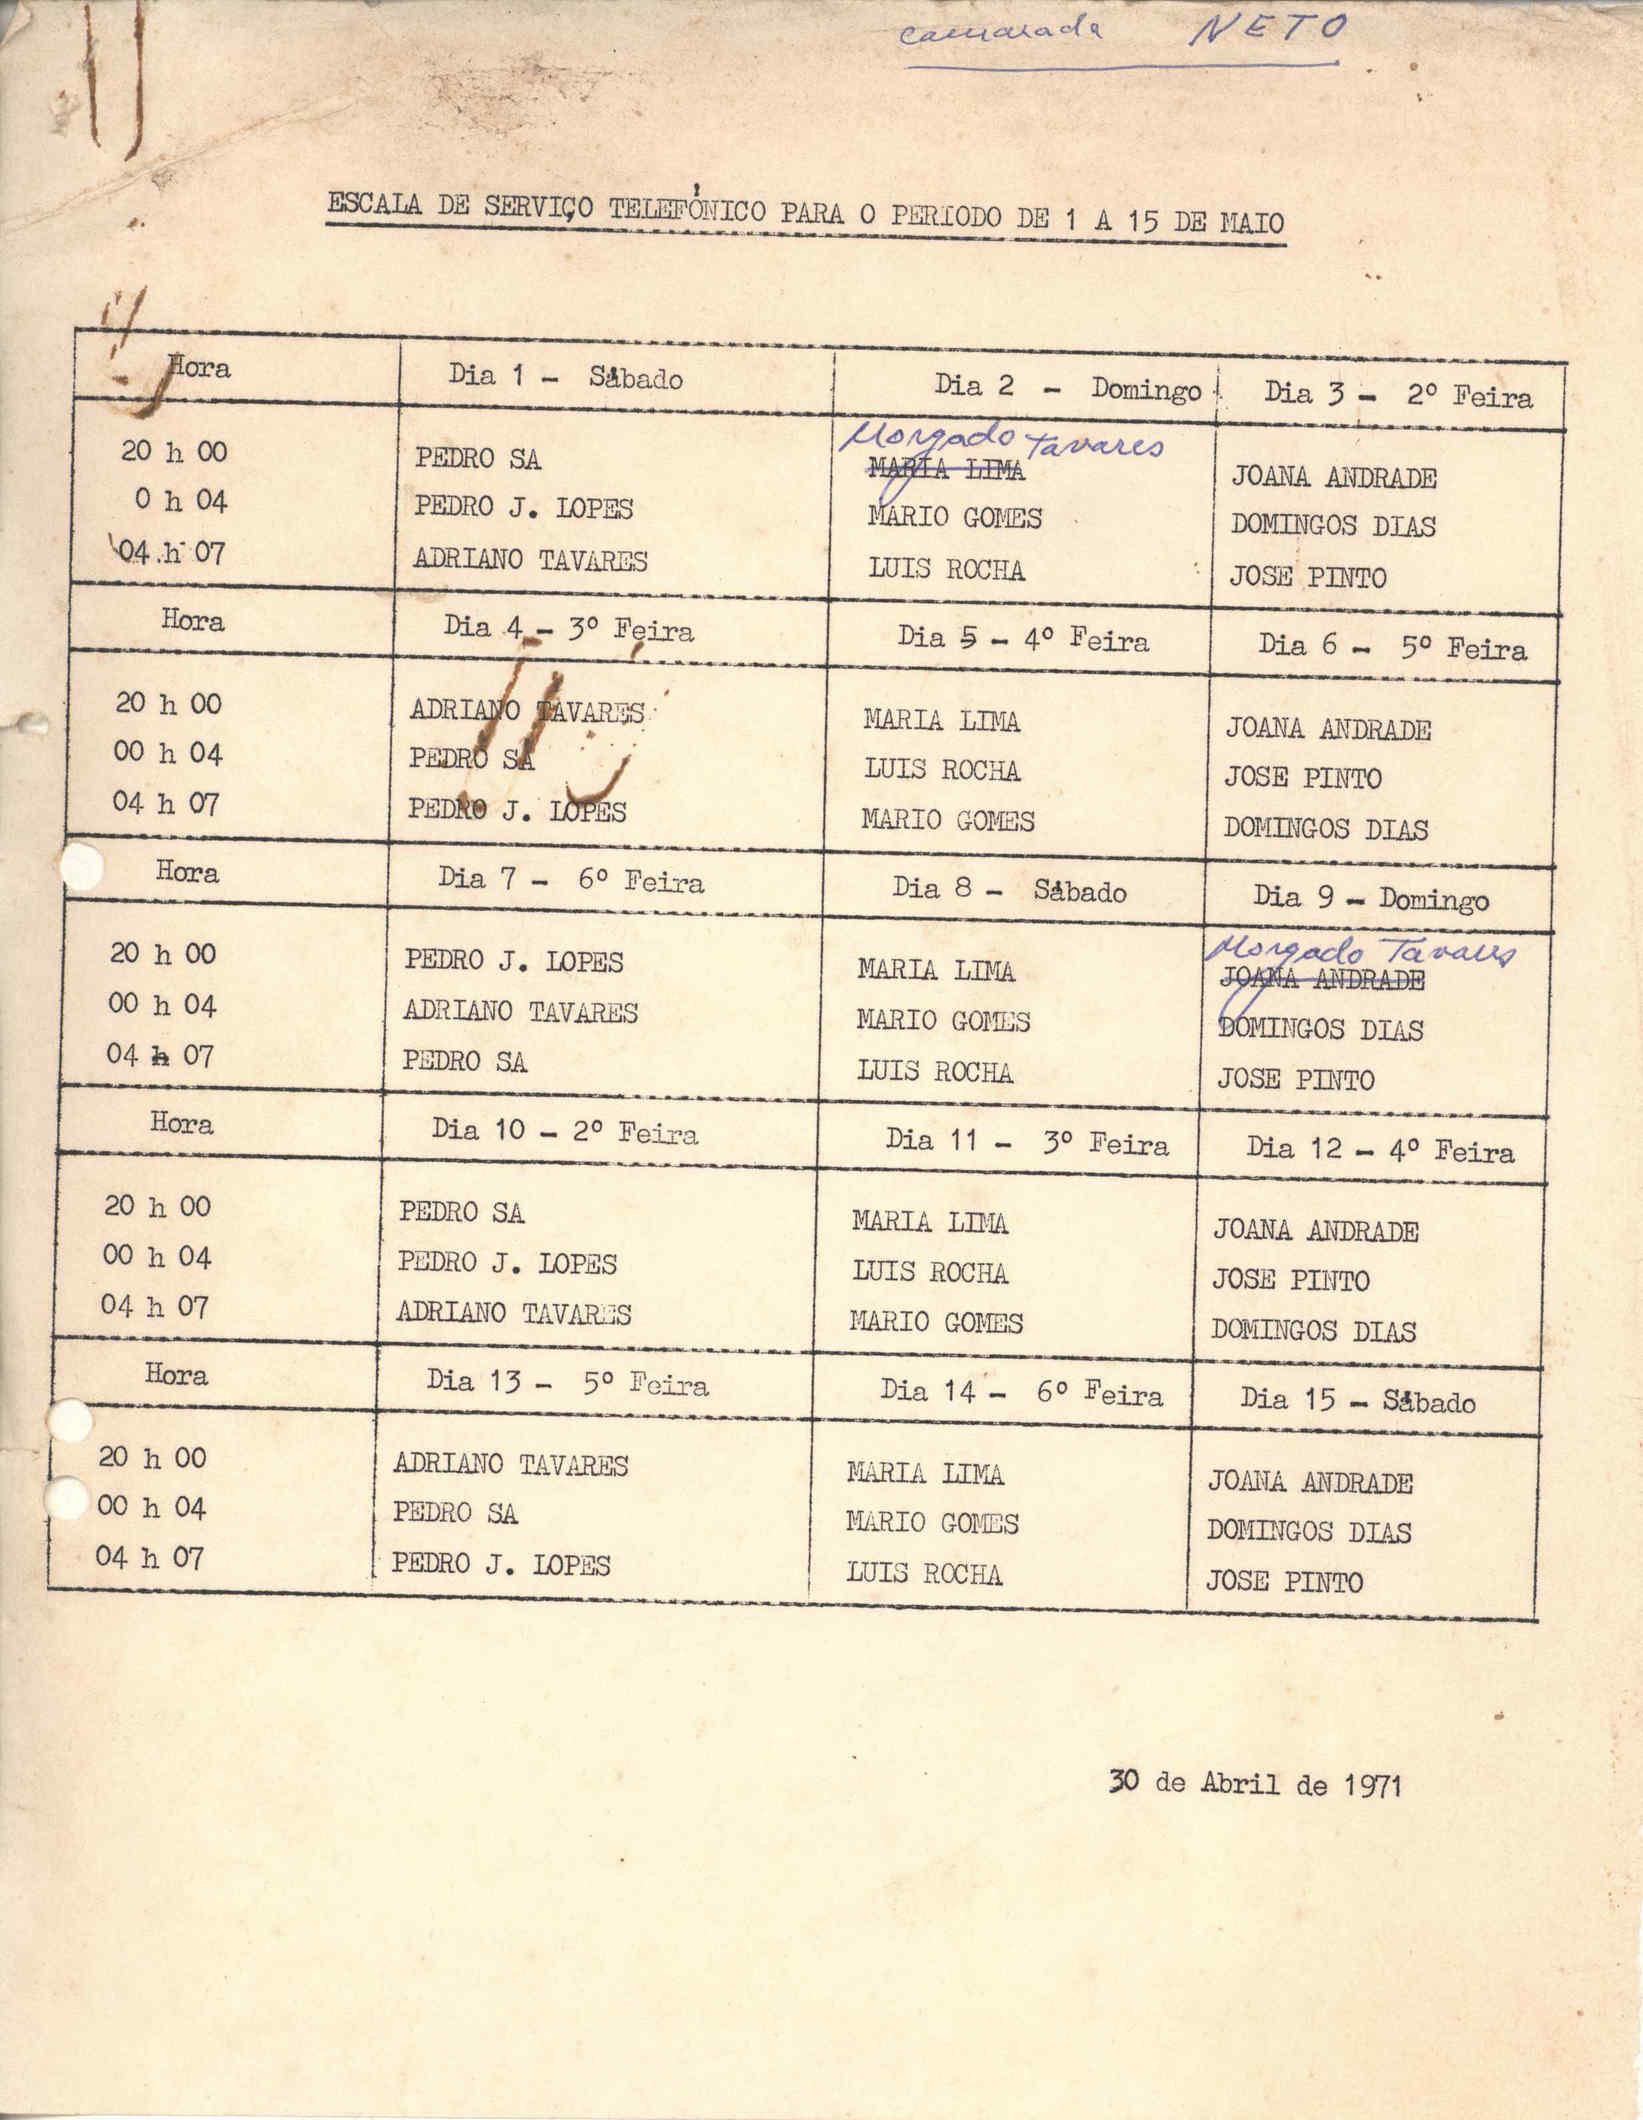 camarada NETO
ESCALA DE SERVIÇO TELEFÓNICO PARA O PERIODO DE 1 A 15 DE MAIO
Hora Dia 1 - Sábado Dia 2 - Domingo Dia 3 - 2º Feira
Morgado Tavares
20 h 00 PEDRO SA MARIA LIMA JOANA ANDRADE
0 h 04 PEDRO J. LOPES MARIO GOMES DOMINGOS DIAS
04 h 07 ADRIANO TAVARES LUIS ROCHA JOSE PINTO
Hora Dia 4 - 3º Feira Dia 5 - 4º Feira Dia 6 - 5º Feira
20 h 00 ADRIANO TAVARES MARIA LIMA JOANA ANDRADE
00 h 04 PEDRO SA LUIS ROCHA JOSE PINTO
04 h 07 PEDRO J. LOPES MARIO GOMES DOMINGOS DIAS
Hora Dia 7 - 6º Feira Dia 8 - Sábado Dia 9 - Domingo
Morgado Tavares
20 h 00 PEDRO J. LOPES MARIA LIMA JOANA ANDRADE
00 h 04 ADRIANO TAVARES MARIO GOMES DOMINGOS DIAS
04 h 07 PEDRO SA LUIS ROCHA JOSE PINTO
Hora Dia 10 - 2º Feira Dia 11 - 3º Feira Dia 12 - 4º Feira
20 h 00 PEDRO SA MARIA LIMA JOANA ANDRADE
00 h 04 PEDRO J. LOPES LUIS ROCHA JOSE PINTO
04 h 07 ADRIANO TAVARES MARIO GOMES DOMINGOS DIAS
Hora Dia 13 - 5º Feira Dia 14 - 6º Feira Dia 15 - Sábado
20 h 00 ADRIANO TAVARES MARIA LIMA JOANA ANDRADE
00 h 04 PEDRO SA MARIO GOMES DOMINGOS DIAS
04 h 07 PEDRO J. LOPES LUIS ROCHA JOSE PINTO
30 de Abril de 1971